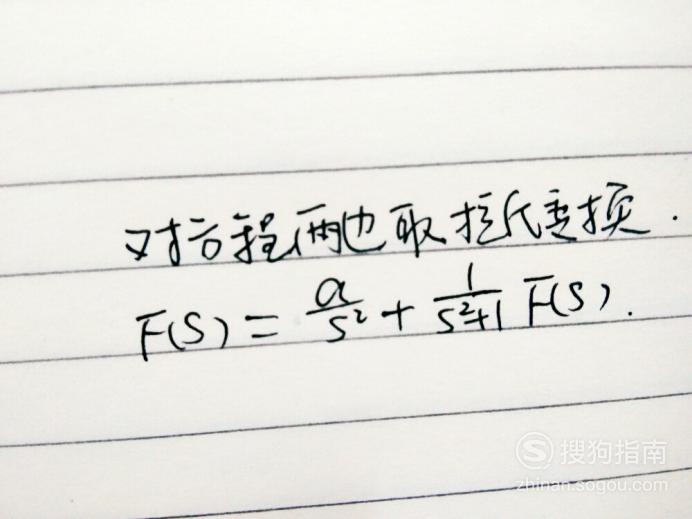 对方程两边取拉氏变换.
F(S) = a/S² + 1/(S²+1) F(S).
S 搜狗指南
zhinan.sogou.com